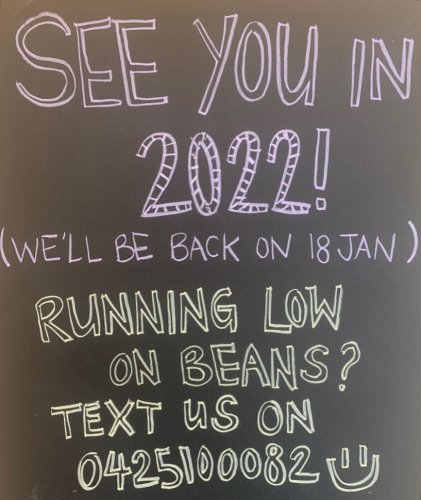 SEE YOU IN
2022!
(WE'LL BE BACK ON 18 JAN)
RUNNING LOW
ON BEANS?
TEXT US ON
0425100082